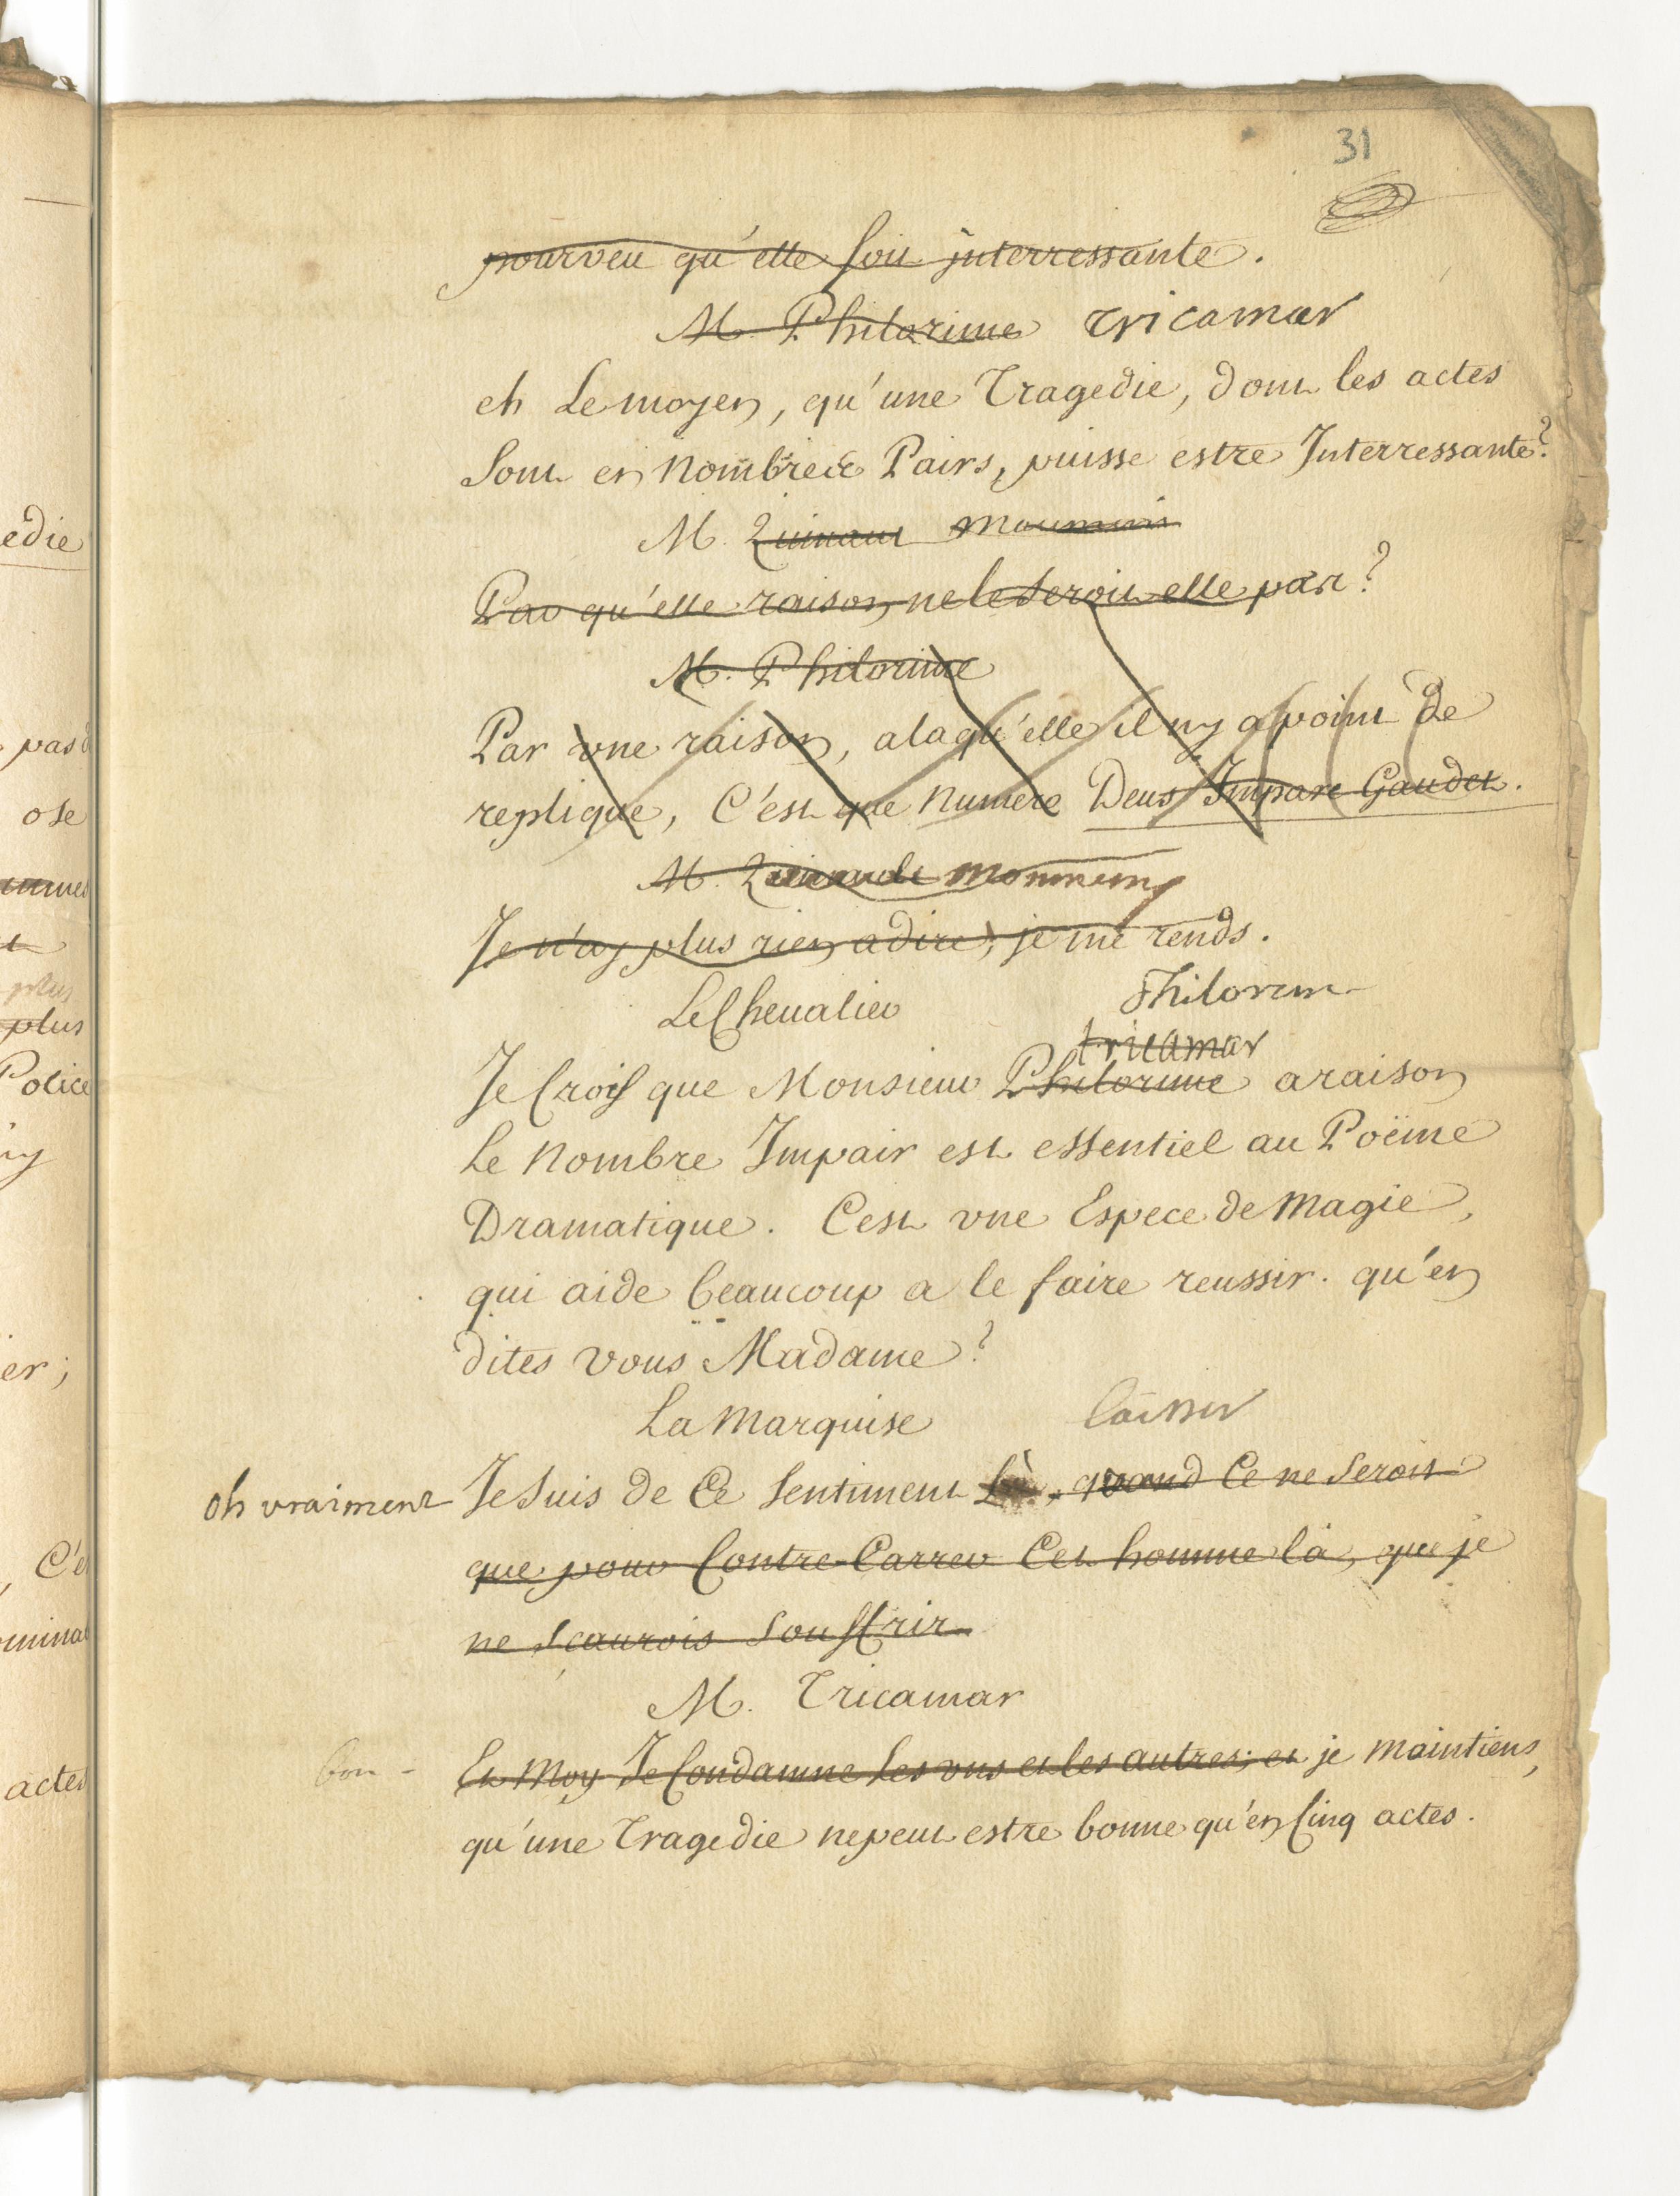 31
pourveu qu'elle soit jnterressante.
M. Philorime Tricamar
eh Le moyen, qu'une Tragedie, dont les actes
sont en Nombre de Pairs, puisse estre Interressante?
M.
Par qu'elle raison, ne le seroit elle pas?
M. Philorime
Par vne raison, alaqu'elle il ny a point de
replique, C'est que Numero Deus Impare Gaudet.
M.
Je n'ay plus rien a dire, je me rends.
Le Chevalier Philorim
tricamar
Je Crois que Monsieur Philorime a raison
Le Nombre Impair est essentiel au Poëme
Dramatique. Cest vne Espece de Magie,
qui aide beaucoup a le faire reussir. qu'en
dites vous Madame?
La Marquise
oh vraiment Je suis de Ce sentiment Là, quand Ce ne seroit
que pour Contre-Carrer Cet homme là, que je
ne scaurois souffrir
M. Tricamar
bon - Et Moy Je Condamne Les vns et les autres; et je Maintiens,
qu'une Tragedie ne peut estre bonne qu'en Cinq actes.
edie
pas
ose
plus
plus
Police
er;
C'e
actes